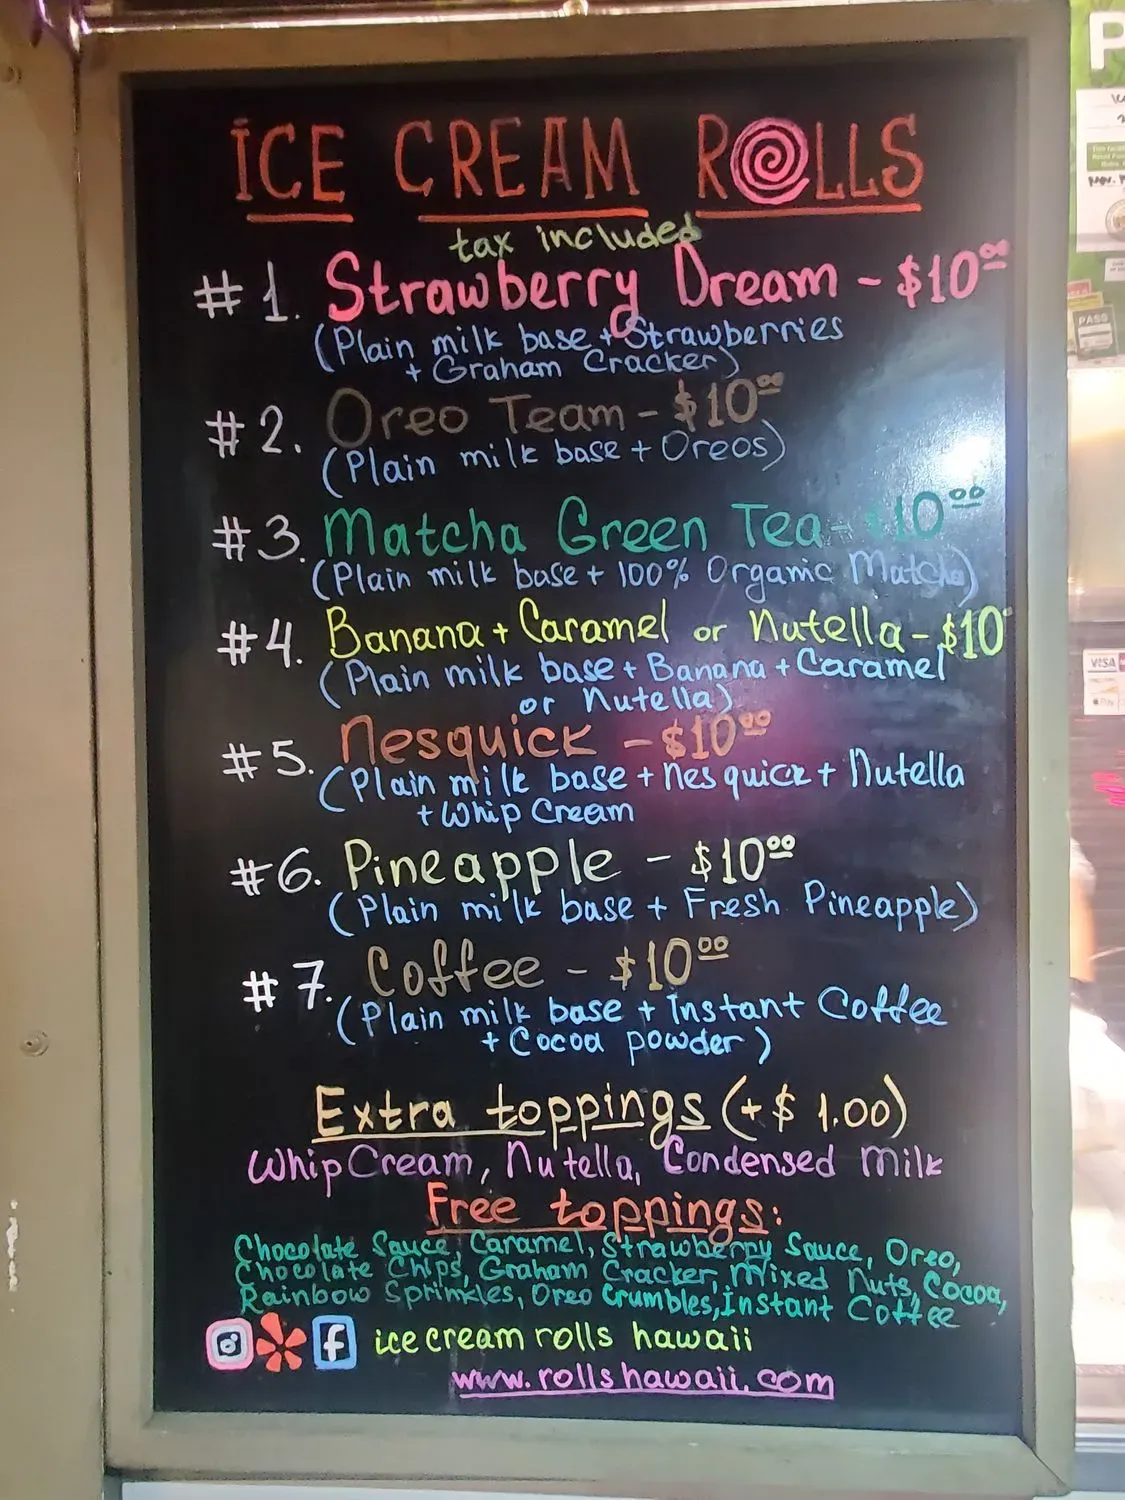 ICE CREAM ROLLS
tax included
#1. Strawberry Dream - $10.00
(Plain milk base + Strawberries
+ Graham Cracker)
#2. Oreo Team - $10.00
(Plain milk base + Oreos)
#3. Matcha Green Tea - $10.00
(Plain milk base + 100% Organic Matcha)
#4. Banana + Caramel or Nutella - $10
(Plain milk base + Banana + Caramel
or Nutella)
#5. Nesquick - $10.00
(Plain milk base + Nesquick + Nutella
+ Whip Cream
#6. Pineapple - $10.00
(Plain milk base + Fresh Pineapple)
#7. Coffee - $10.00
(Plain milk base + Instant Coffee
+ Cocoa powder)
Extra toppings (+ $ 1.00)
Whip Cream, Nutella, Condensed Milk
Free toppings:
Chocolate Sauce, Caramel, Strawberry Sauce, Oreo,
Chocolate Chips, Graham Cracker, Mixed Nuts, Cocoa,
Rainbow Sprinkles, Oreo Crumbles, Instant Coffee
ice cream rolls hawaii
www.rollshawaii.com
P
PASS
VISA
Pay